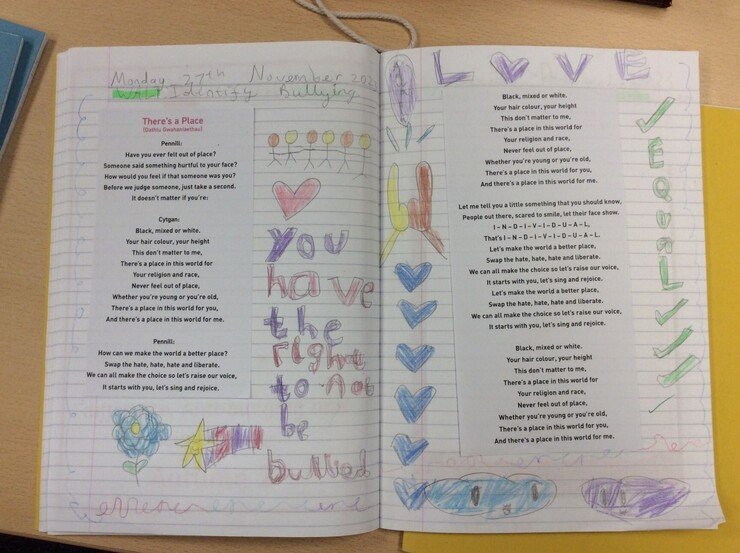 Monday 27th November
W.A.L.T. Identify Bullying
There's a Place
(Dathlu Gwahaniaethau)
Pennill:
Have you ever felt out of place?
Someone said something hurtful to your face?
How would you feel if that someone was you?
Before we judge someone, just take a second.
It doesn't matter if you're:
Cytgan:
Black, mixed or white.
Your hair colour, your height
This don't matter to me,
There's a place in this world for
Your religion and race,
Never feel out of place,
Whether you're young or you're old,
There's a place in this world for you,
And there's a place in this world for me.
Pennill:
How can we make the world a better place?
Swap the hate, hate, hate and liberate.
We can all make the choice so let's raise our voice,
It starts with you, let's sing and rejoice.
You
have
the
right
to not
be
bullied
LOVE
Black, mixed or white.
Your hair colour, your height
This don't matter to me,
There's a place in this world for
Your religion and race,
Never feel out of place,
Whether you're young or you're old,
There's a place in this world for you,
And there's a place in this world for me.
Let me tell you a little something that you should know,
People out there, scared to smile, let their face show.
I – N – D – I – V – I – D – U – A – L,
That's I – N – D – I – V – I – D – U – A – L.
Let's make the world a better place,
Swap the hate, hate, hate and liberate.
We can all make the choice so let's raise our voice,
It starts with you, let's sing and rejoice.
Let's make the world a better place,
Swap the hate, hate, hate and liberate.
We can all make the choice so let's raise our voice,
It starts with you, let's sing and rejoice.
Black, mixed or white.
Your hair colour, your height
This don't matter to me,
There's a place in this world for
Your religion and race,
Never feel out of place,
Whether you're young or you're old,
There's a place in this world for you,
And there's a place in this world for me.
EQUAL